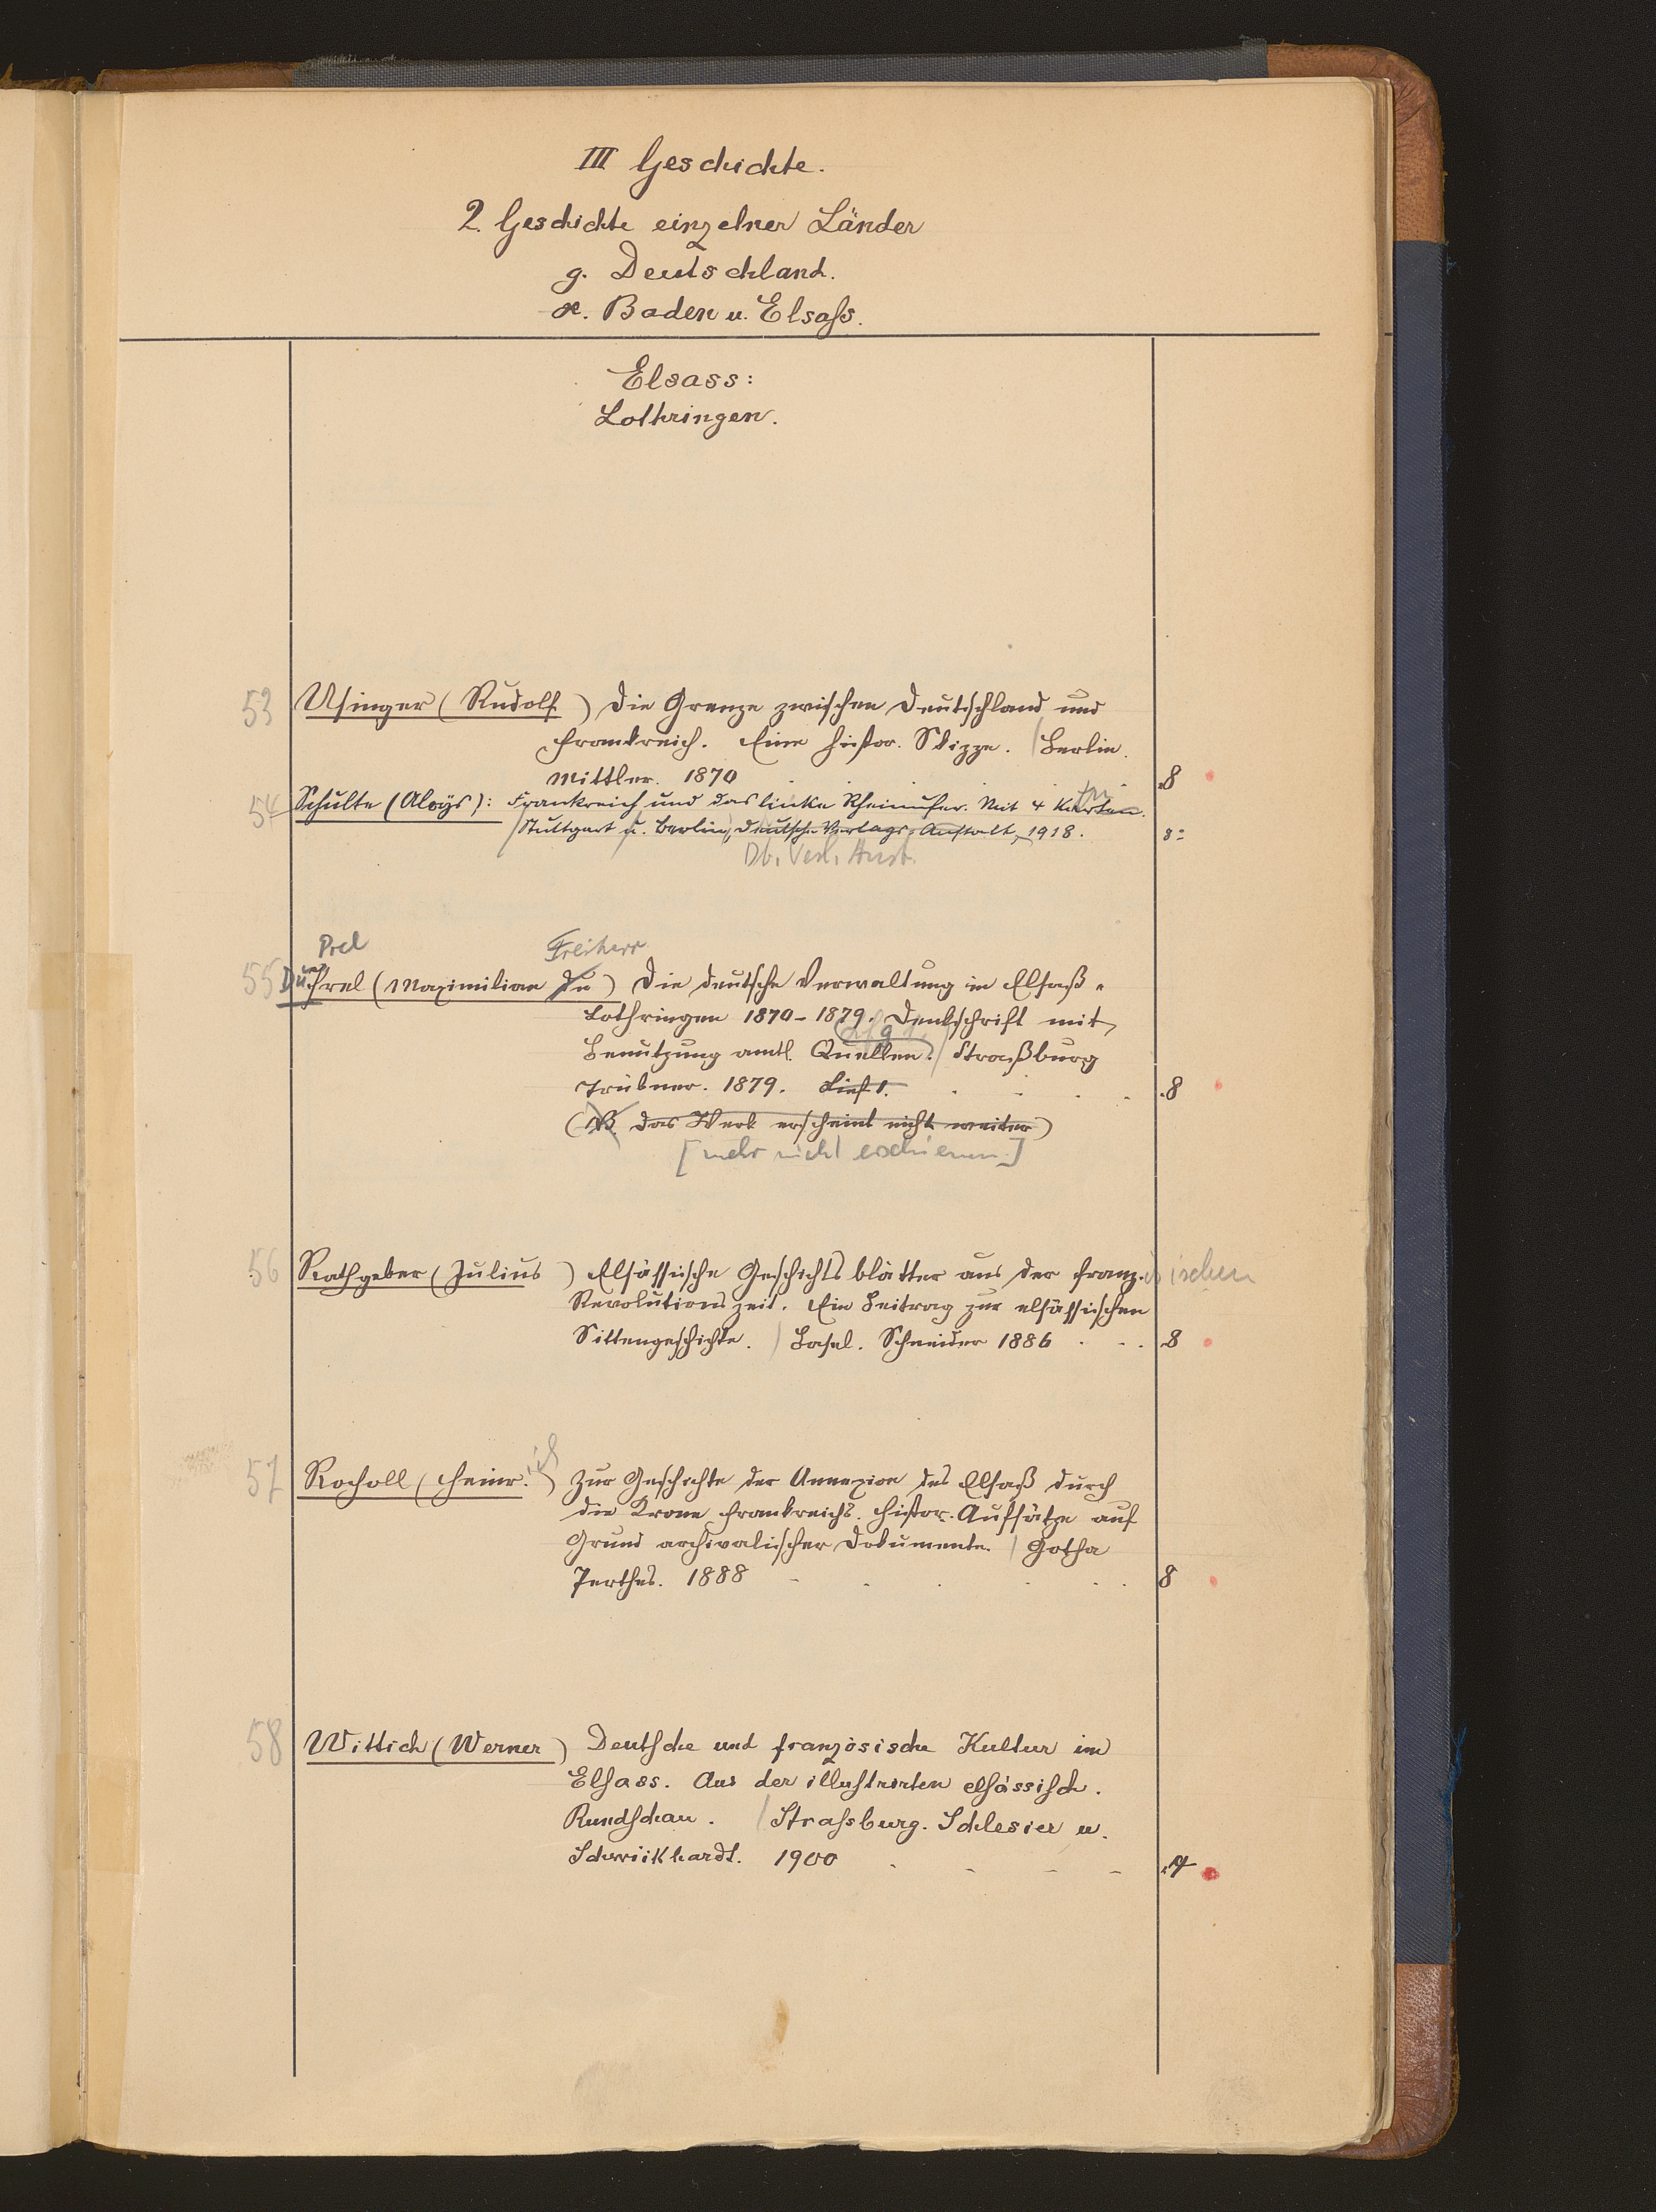 III Geschichte.
2. Geschichte einzelner Länder
g. Deutschland.
æ. Baden u. Elsass.
Elsass:
Lothringen.
53 Usinger (Rudolf) Die Grenze zwischen Deutschland und
Frankreich. Eine histor. Skizze. / Berlin.
Mittler. 1870 8
54 Schulte (Aloÿs): Frankreich und das linke Rheinufer. Mit 4 Karten.
/ Stuttgart u. Berlin, Deutsche Verlags-Anstalt, 1918. 8=
Dt. Verl. Anst.
Prel Freiherr
55 Du Prel (Maximilian du) Die deutsche Verwaltung in Elsaß-
Lothringen 1870-1879. Denkschrift mit
Benutzung amtl. Quellen. / Straßburg
Trübner. 1879. Lief 1. 8
(NB. das Werk erscheint nicht weiter)
[mehr nicht erschienen.]
56 Rathgeber (Julius) Elsässische Geschichtsblätter aus der franz.ösischen
Revolutionszeit. Ein Beitrag zur elsässischen
Sittengeschichte. / Basel. Schneider 1886 8
57 Rocholl (Heinr.ich) Zur Geschichte der Annexion des Elsaß durch
die Krone Frankreichs. Histor. Aufsätze auf
Grund archivalischer Dokumente. / Gotha
Perthes. 1888 8
58 Wittich (Werner) Deutsche und französische Kultur im
Elsass. Aus der illustrirten elsässisch.
Rundschau. / Strassburg. Schlesier u.
Schweikhardt. 1900 4